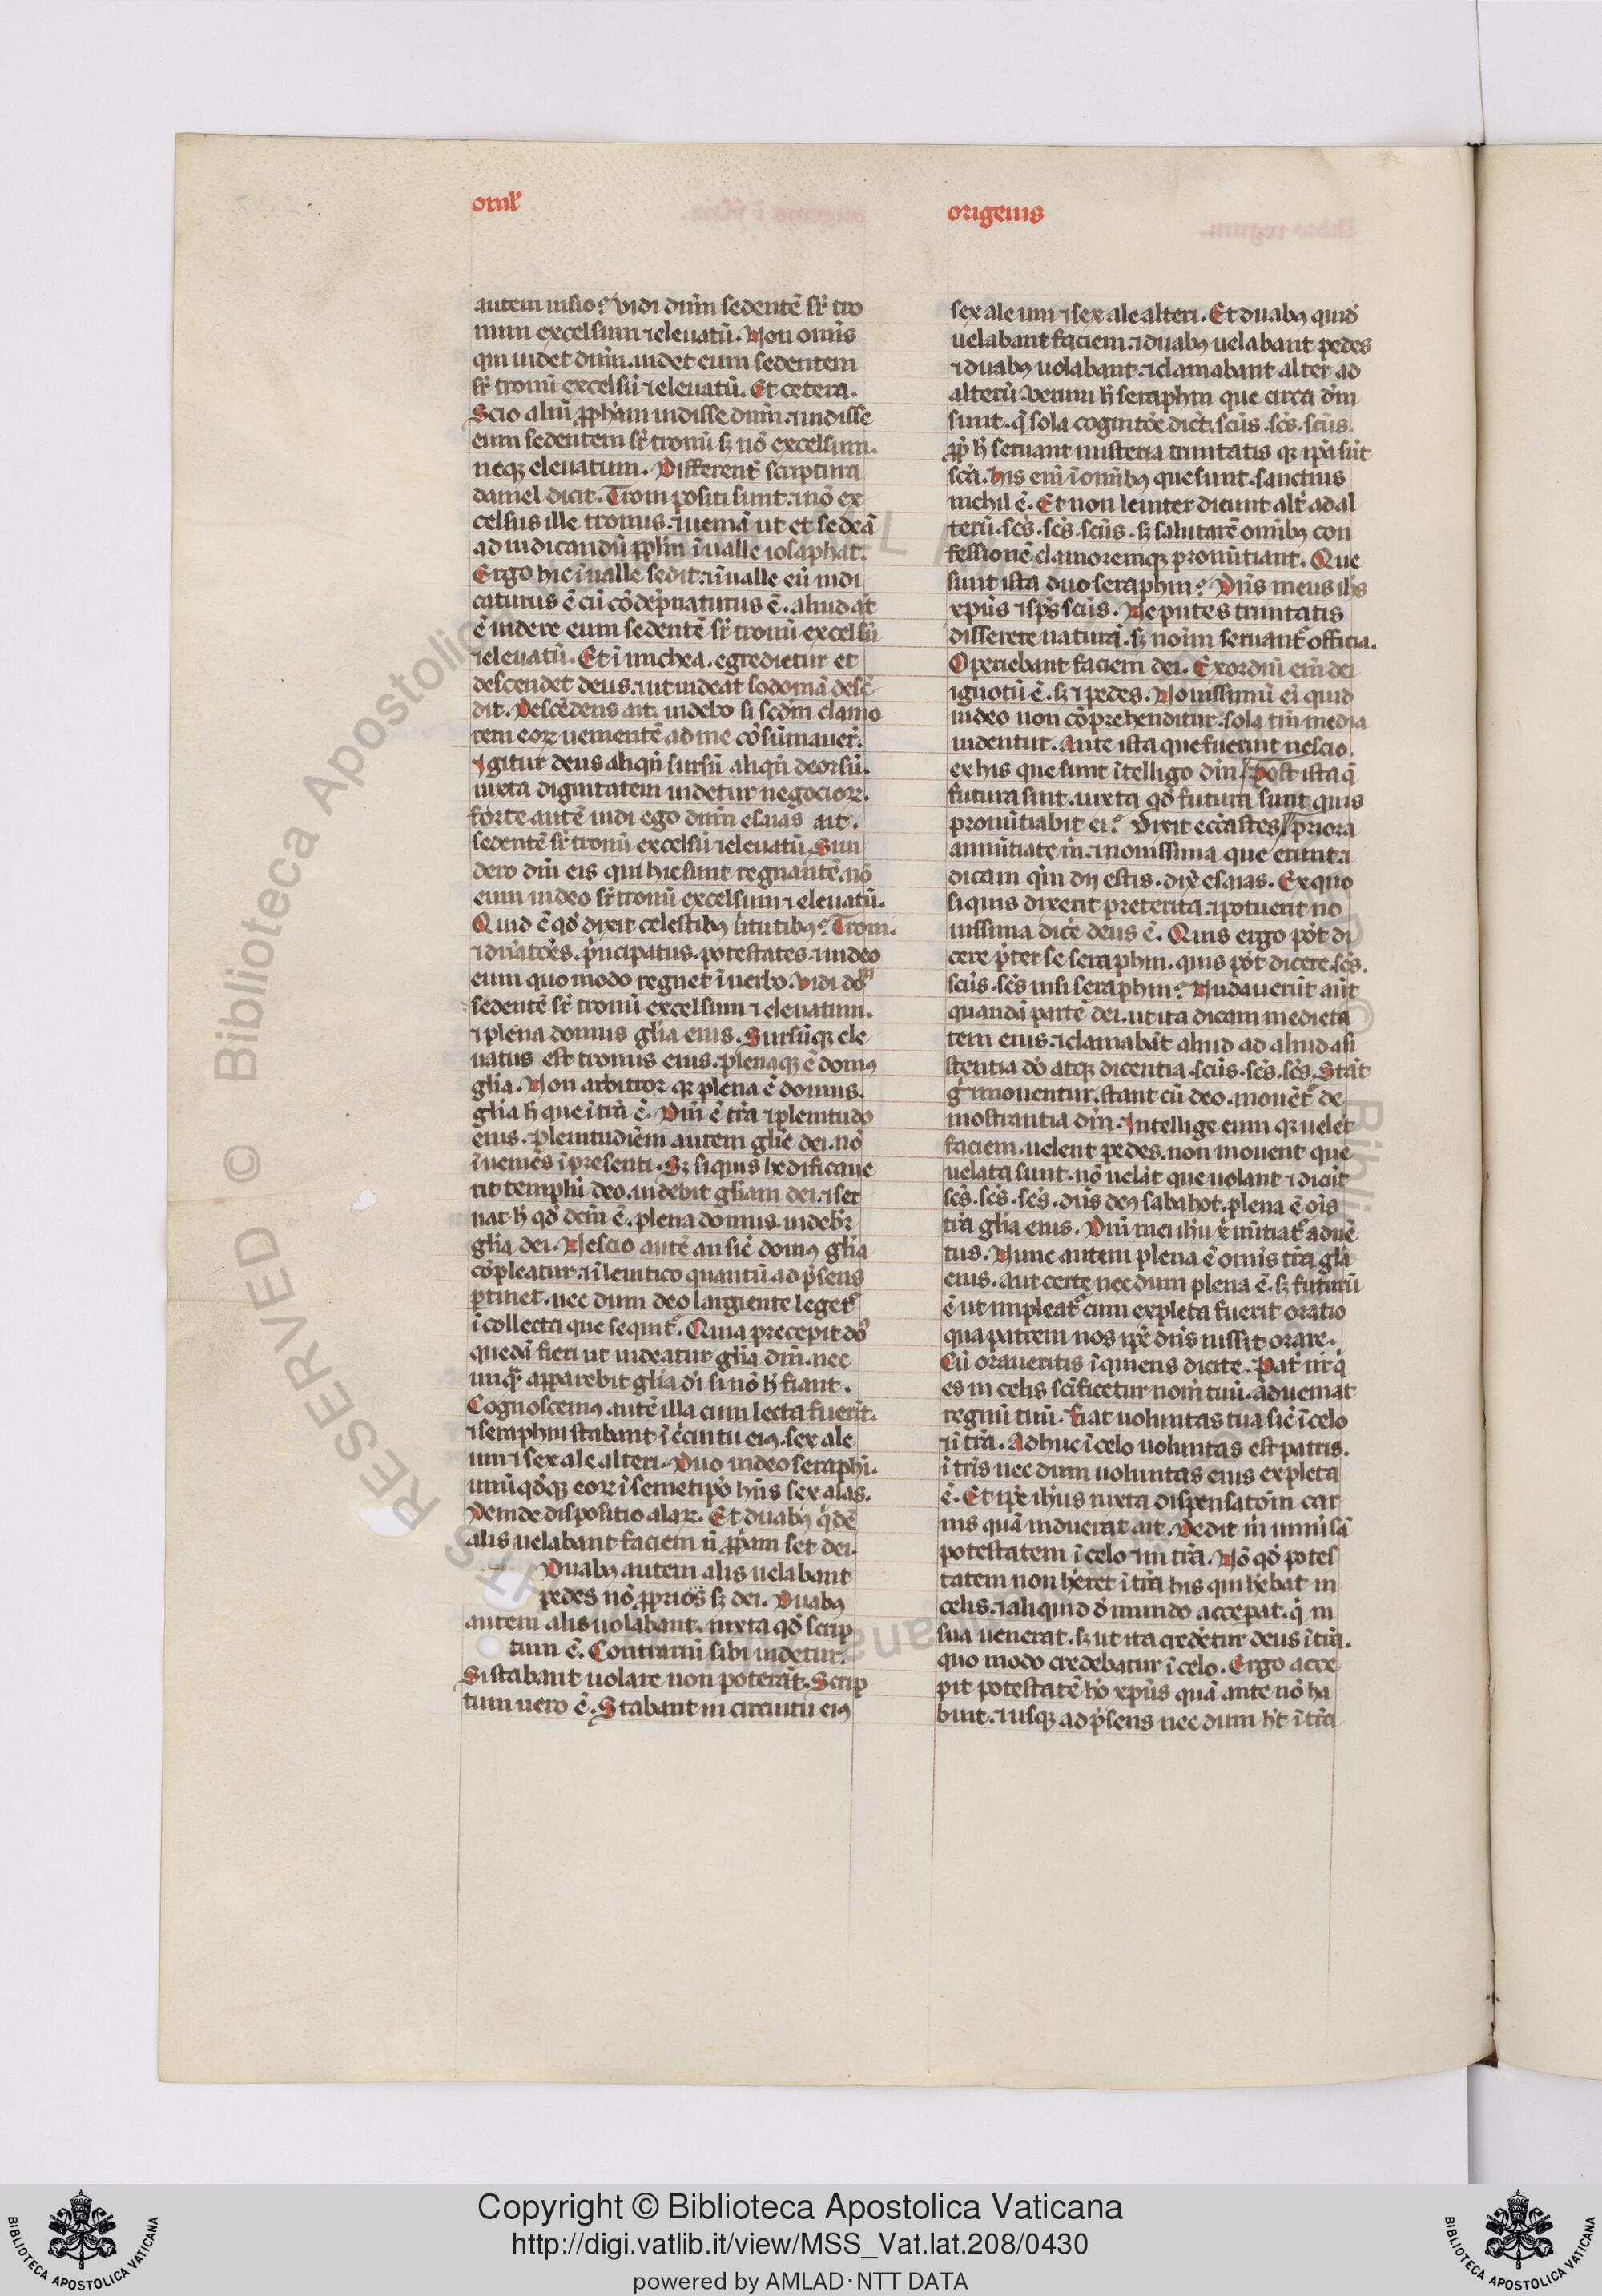 omł
origenis
autem uisio? Vidi dnm sedentē sr tro
num excelsum ⁊ eleuatū. Non omīs
qui uidet dnm. uidet eum sedentem
sr tronū excelsū ⁊ eleuatū. Et cetera.
Scio aliū ꝓpham uidisse dnm. ⁊ uidisse
eum sedentem sr tronū sꝫ nō excelsum.
neqꝫ eleuatum. Differenr̄ scriptura
daniel dicit. Troni positi sunt. ⁊ nō ex
celsus ille tronus. ⁊ ueniā ut et sedeā
ad iudicandū ꝓplm ī ualle iosaphat.
Ergo hic ī ualle sedit. ⁊ ī ualle eū iudi
caturus ē cū cōdēpnaturus ē. aliud at̄
ē uidere eum sedentē sr tronū excelsū
⁊ eleuatū. Et ī michea. egredietur et
descendet deus. ⁊ ut uideat sodomā desc̄
dit. Descēdens ait. uidebo si scdm clamo
rem eoꝝ uementē ad me cōsūmauer̄.
Igitur deus aliqn̄ sursū aliqn̄ deorsū.
iuxta dignitatem uidetur negocioꝝ.
forte autē uidi ego dnm esaias ait.
sedentē sr tronū excelsū ⁊ eleuatū. Si ui
dero dm̄ eis qui hic sunt regnantē. nō
eum uideo sr tronū excelsum ⁊ eleuatū.
Quid ē qd̄ dixit celestibꝰ uirtutibꝰ? Troni.
⁊ dn̄atōes. pncipatus. potestates. ⁊ uideo
eum quomodo regnet ī uerbo. Vidi dom
sedentē sr tronū excelsum ⁊ eleuatum.
⁊ plena domus glia eius. Sursūqꝫ ele
uatus est tronus eius. plenaqꝫ ē domꝰ
glia. Non arbitror qꝫ plena ē domus.
glia h̄ que ī tr̄a ē. Dn̄i ē tr̄a ⁊ plenitudo
eius. plenitudinem autem glie dei. nō
īuenies ī presenti. Sꝫ si quis hedificaue
rit templū deo. uidebit gliam dei. ⁊ ser
uat h̄ qd̄ dcm̄ ē. plena domus. uidebr̄
glia dei. Nescio autē an sic̄ domꝰ glia
cōpleatur. ⁊ ī leuitico quantū ad p̄sens
ꝑtinet. nec dum deo largiente leget̄
ī collecta que sequit̄. Quia precepit dꝰ
quedā fieri ut uideatur glia dni. nec
unqꝫ apparebit glia di si nō h̄ fiant.
Cognoscemꝰ autē illa cum lecta fuerīt.
⁊ seraphin stabant ī ccuitu eiꝰ. sex ale
uni ⁊ sex ale alteri. Duo uideo seraphī.
unūqdqꝫ eoꝝ ī semetipō hn̄s sex alas.
Deinde dispositio alaꝝ. Et duabꝰ qdē
alis uelabant faciem n̄ ꝓpam set dei.
Duabꝰ autem alis uelabant
pedes nō ꝓprios sꝫ dei. Duabꝰ
autem alis uolabant. iuxta qd̄ scrip
tum ē. Contrariū sibi uidetur.
Si stabant uolare non poterāt. Scrip
tum uero ē. Stabant in circuitu eiꝰ
sex ale uni ⁊ sex ale alteri. Et duabꝰ quid̄
uelabant faciem. ⁊ duabꝰ uelabant pedes
⁊ duabꝰ uolabant. ⁊ clamabant alter ad
alterū. Verum h̄ seraphin que circa dm̄
sunt. q̄ sola cognitōe dict̄. scūs. scs̄. scūs.
ꝓp h̄ seruant misteria trinitatis qꝫ ip̄a sūt
scā. his eni ī omībꝰ que sunt. sanctius
nichil ē. Et non leuiter dicunt alt̄ ad al
terū. scs̄. scs̄. scūs. sꝫ salutarē omībꝰ con
fessionē clamoremqꝫ pronūtiant. Que
sunt ista duo seraphin? Dn̄s meus ihs
xpūs ⁊ sps̄ scūs. Ne putes trinitatis
disserere naturā. sꝫ noīm seruant̄ officia.
Operiebant faciem dei. Exordiū eni dei
ignotū ē. sꝫ ⁊ pedes. Nouissimū ei quid
uideo non cōprehenditur. sola tm̄ media
uidentur. Ante ista que fuerint nescio.
ex his que sunt ītelligo dm̄ Post ista q̄
futura sint. iuxta qd̄ futura sunt quis
pronūtiabit ei? Dixit ecc̄astes Priora
annūtiate m̄. ⁊ nouissima que erunt. ⁊
dicam qm̄ dij estis. dix̄ esaias. Ex quo
si quis dixerit preterita. ⁊ potuerit no
uissima dic̄e deus ē. Quis ergo pōt di
cere p̄ter se seraphin. quis pōt dicere. scs̄.
scūs. scs̄ nisi seraphin? Nudauerūt aūt
quandā partē dei. ut ita dicam medieta
tem eius. ⁊ clamabāt aliud ad aliud asi
stentia dō atqꝫ dicentia. scūs. scs̄. scs̄. Stāt
g̊ ⁊ mouentur. stant cū deo. mouēt̄ de
mostrantia dm̄. Intellige eum qꝫ uelēt
faciem. uelent pedes. non mouent que
uelata sunt. nō uelāt que uolant ⁊ dicūt
scs̄. scs̄. scs̄. dn̄s deꝰ sabahot. plena ē oīs
tr̄a glia eius. Dn̄i mei ihū xi nūtiat̄ aduē
tus. Nunc autem plena ē omīs tr̄a glia
eius. aut certe nec dum plena ē. sꝫ futurū
ē ut impleat̄ cum expleta fuerit oratio
qua patrem nos ip̄e dn̄s iussit orare.
Cū oraueritis īquiens dicite. Pat̄ nr̄ q̄
es in celis scificetur nom̄ tuū. adueniat
regnū tuū. Fiat uoluntas tua sic̄ ī celo
⁊ ī tr̄a. Adhuc ī celo uoluntas est patris.
ī tris nec dum uoluntas eius expleta
ē. Et ip̄e ihus iuxta dispensatōm car
nis quā induerat ait. Dedit m̄ inmīsā
potestatem ī celo ⁊ in tr̄a. Nō qd̄ potes
tatem non heret ī tr̄a his qui hebat in
celis. ⁊ aliquid d̄ mundo acceꝑat. q̄ in
sua uenerat. sꝫ ut ita credetur deus ī tr̄a.
quo modo credebatur ī celo. Ergo acce
pit potestatē ho xpūs quā ante nō ha
buit. ⁊ usqꝫ ad p̄sens nec dum ht̄ ī tr̄a
Copyright © Biblioteca Apostolica Vaticana
http://digi.vatlib.it/view/MSS_Vat.lat.208/0430
powered by AMLAD·NTT DATA